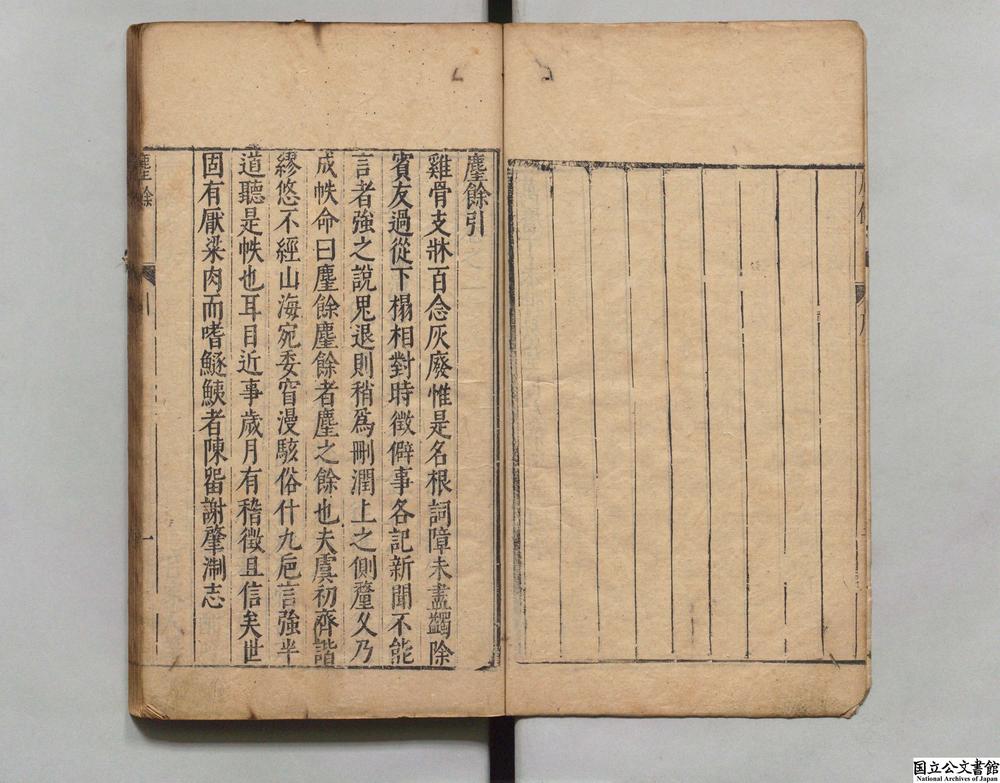 麈餘引
雞骨支牀百念灰廢惟是名根詞障未盡蠲除
賓友過從下榻相對時徵僻事各記新聞不能
言者強之說鬼退則稍爲刪潤上之側釐久乃
成帙命曰麈餘麈餘者麈之餘也夫虞初齊諧
繆悠不經山海宛委窅漫駭俗什九巵言強半
道聽是帙也耳目近事歲月有稽徵且信矣世
固有厭粱肉而嗜鱁鮧者陳畱謝肇淛志
麈餘
引
一
国立公文書館
National Archives of Japan